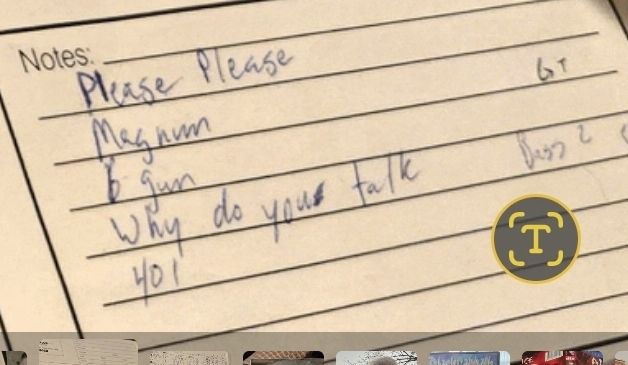 Notes:
Please Please
GT
Magnum
6 gun
Why do you talk
401